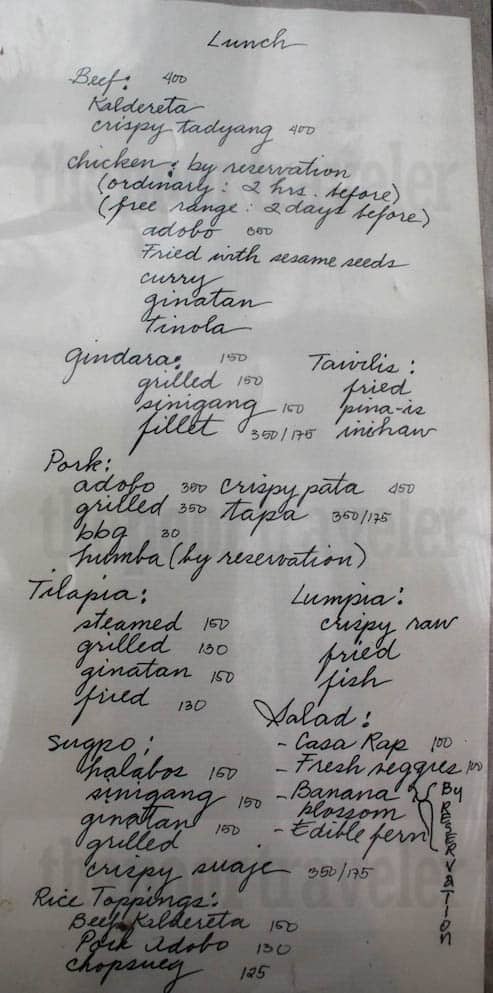 Lunch
Beef: 400
Kaldereta
crispy tadyang 400
chicken: by reservation
(ordinary: 2 hrs. before)
(free range: 2 days before)
adobo
Fried with sesame seeds
curry
ginatan
Tinola
Gindara: 150
grilled 150
sinigang 150
fillet 350/175
Tawilis:
fried
pina-is
inihaw
Pork:
adobo 350 crispy pata 450
grilled 350 tapa 350/175
bbq 30
humba (by reservation)
Tilapia:
steamed 150
grilled 130
ginatan 150
fried 130
Lumpia:
crispy raw
fried
fish
Salad:
- Casa Rap 100
- Fresh veggies 100
- Banana blossom
- Edible fern
By RESERVATION
Sugpo:
halabos 150
sinigang 150
ginatan 150
grilled
crispy suaje 350/175
Rice Toppings:
Beef Kaldereta 150
Pork Adobo 130
chopsuey 125